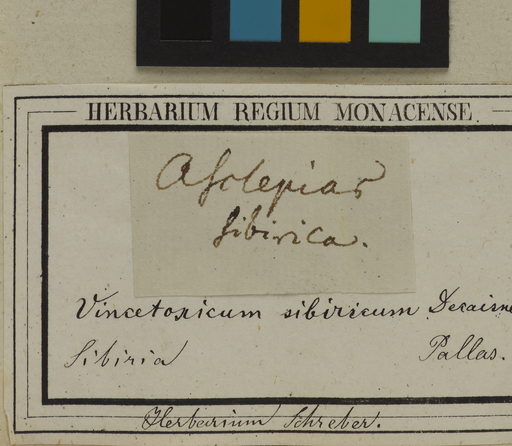 HERBARIUM REGIUM MONACENSE.
Asclepias
sibirica.
Vincetoxicum sibiricum Decaisne
Sibiria Pallas.
Herbarium Schreber.